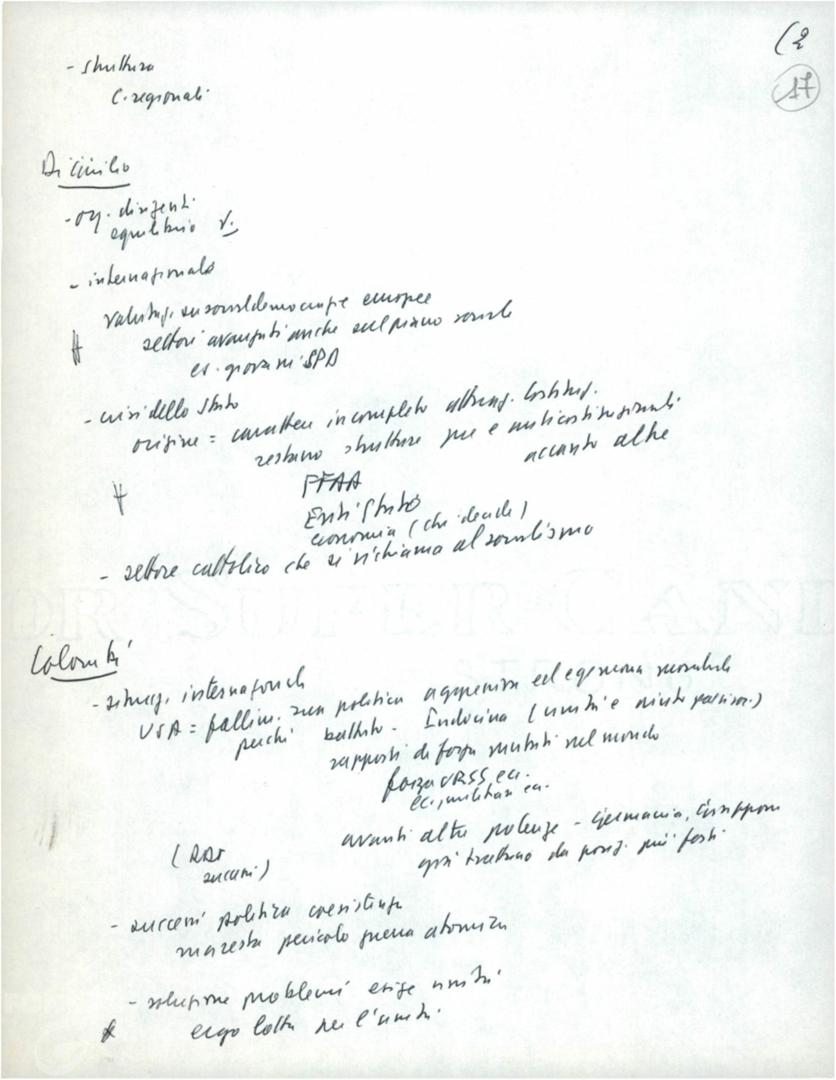 (2
17
- struttura
C. regionali
Di Giulio
- org. dirigenti
equilibrio
- internazionale
valutaz. su socialdemocrazie europee
settori avanzati anche sul piano sociale
es. giovani SPD
- crisi dello Stato
origine = carattere incompleto attuaz. Costituz.
restano strutture pre e anticostituzionali
accanto altre
FFAA
Enti Stato
economia (chi decide)
- settore cattolico che si richiama al socialismo
Colombi
- situaz. internazionale
USA = fallim. sua politica aggressiva ed egemonia mondiale
perché battuto - Indocina (unità e aiuto)
rapporti di forza mutati nel mondo
forza URSS ecc.
ec., militari ecc.
avanti altre potenze - Germania, Giappone
ora trattano da posiz. più forti
(RDT
successi)
- successi politica coesistenza
ma resta pericolo guerra atomica
- soluzione problemi esige unità
ergo lotta per l'unità.